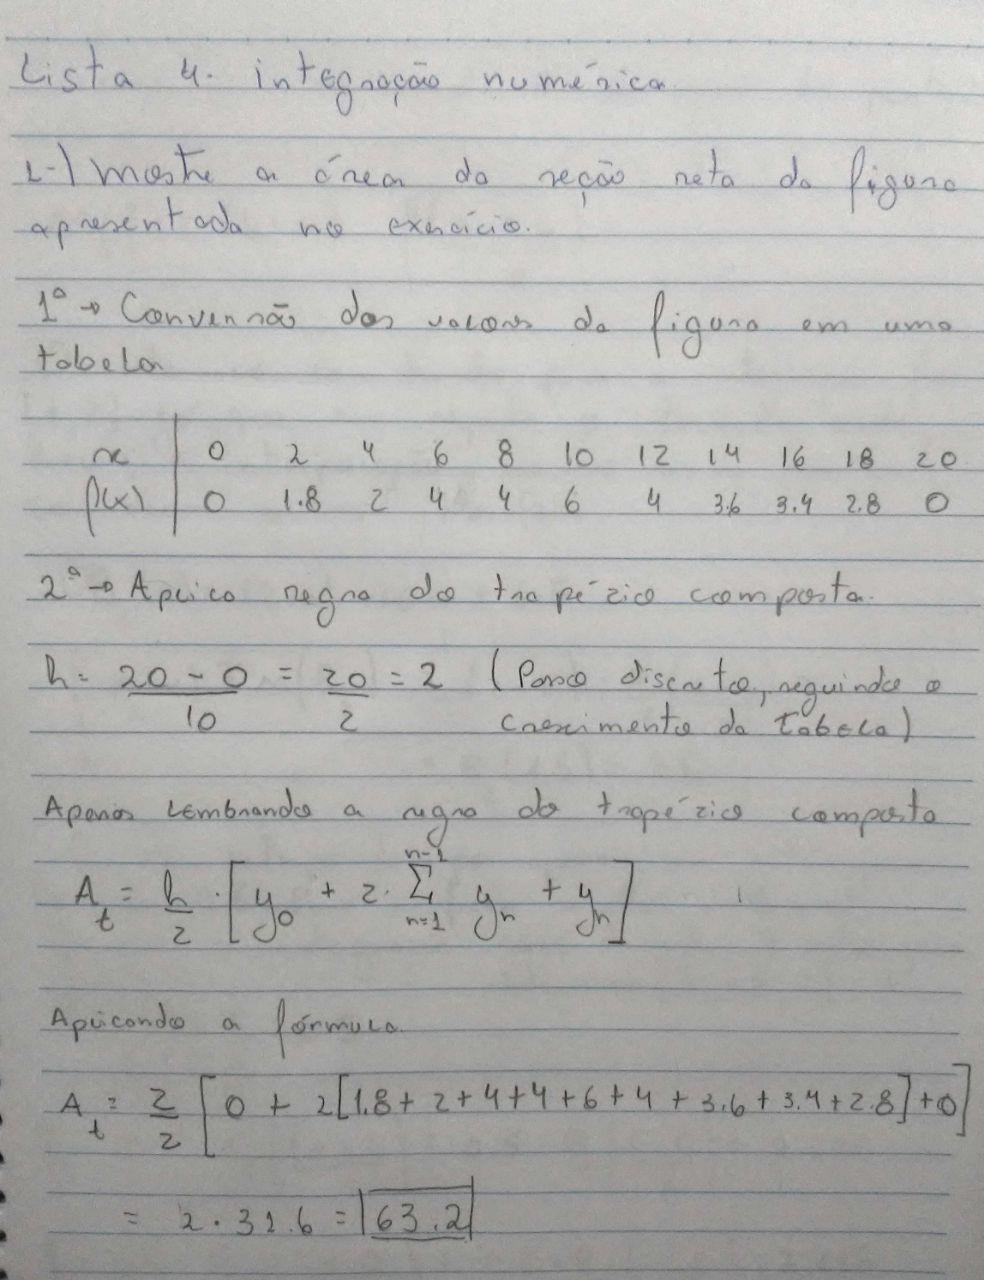 Lista 4. integração numérica
1-) mostre a área da seção reta da figura
apresentada no exercício.
1º → Conversão dos valores da figura em uma
tabela
x | 0 2 4 6 8 10 12 14 16 18 20
f(x) | 0 1.8 2 4 4 6 4 3.6 3.4 2.8 0
2º → Aplico regra do trapézio composta.
h = (20 - 0)/10 = 20/2 = 2 (Passo discreto, seguindo o
crescimento da tabela)
Apenas lembrando a regra do trapézio composto
A_t = h/2 · [y_0 + 2 · Σ_{n=1}^{n-1} y_n + y_n]
Aplicando a fórmula
A_t = 2/2 [0 + 2[1.8 + 2 + 4 + 4 + 6 + 4 + 3.6 + 3.4 + 2.8] + 0]
= 2 · 31.6 = 63.2